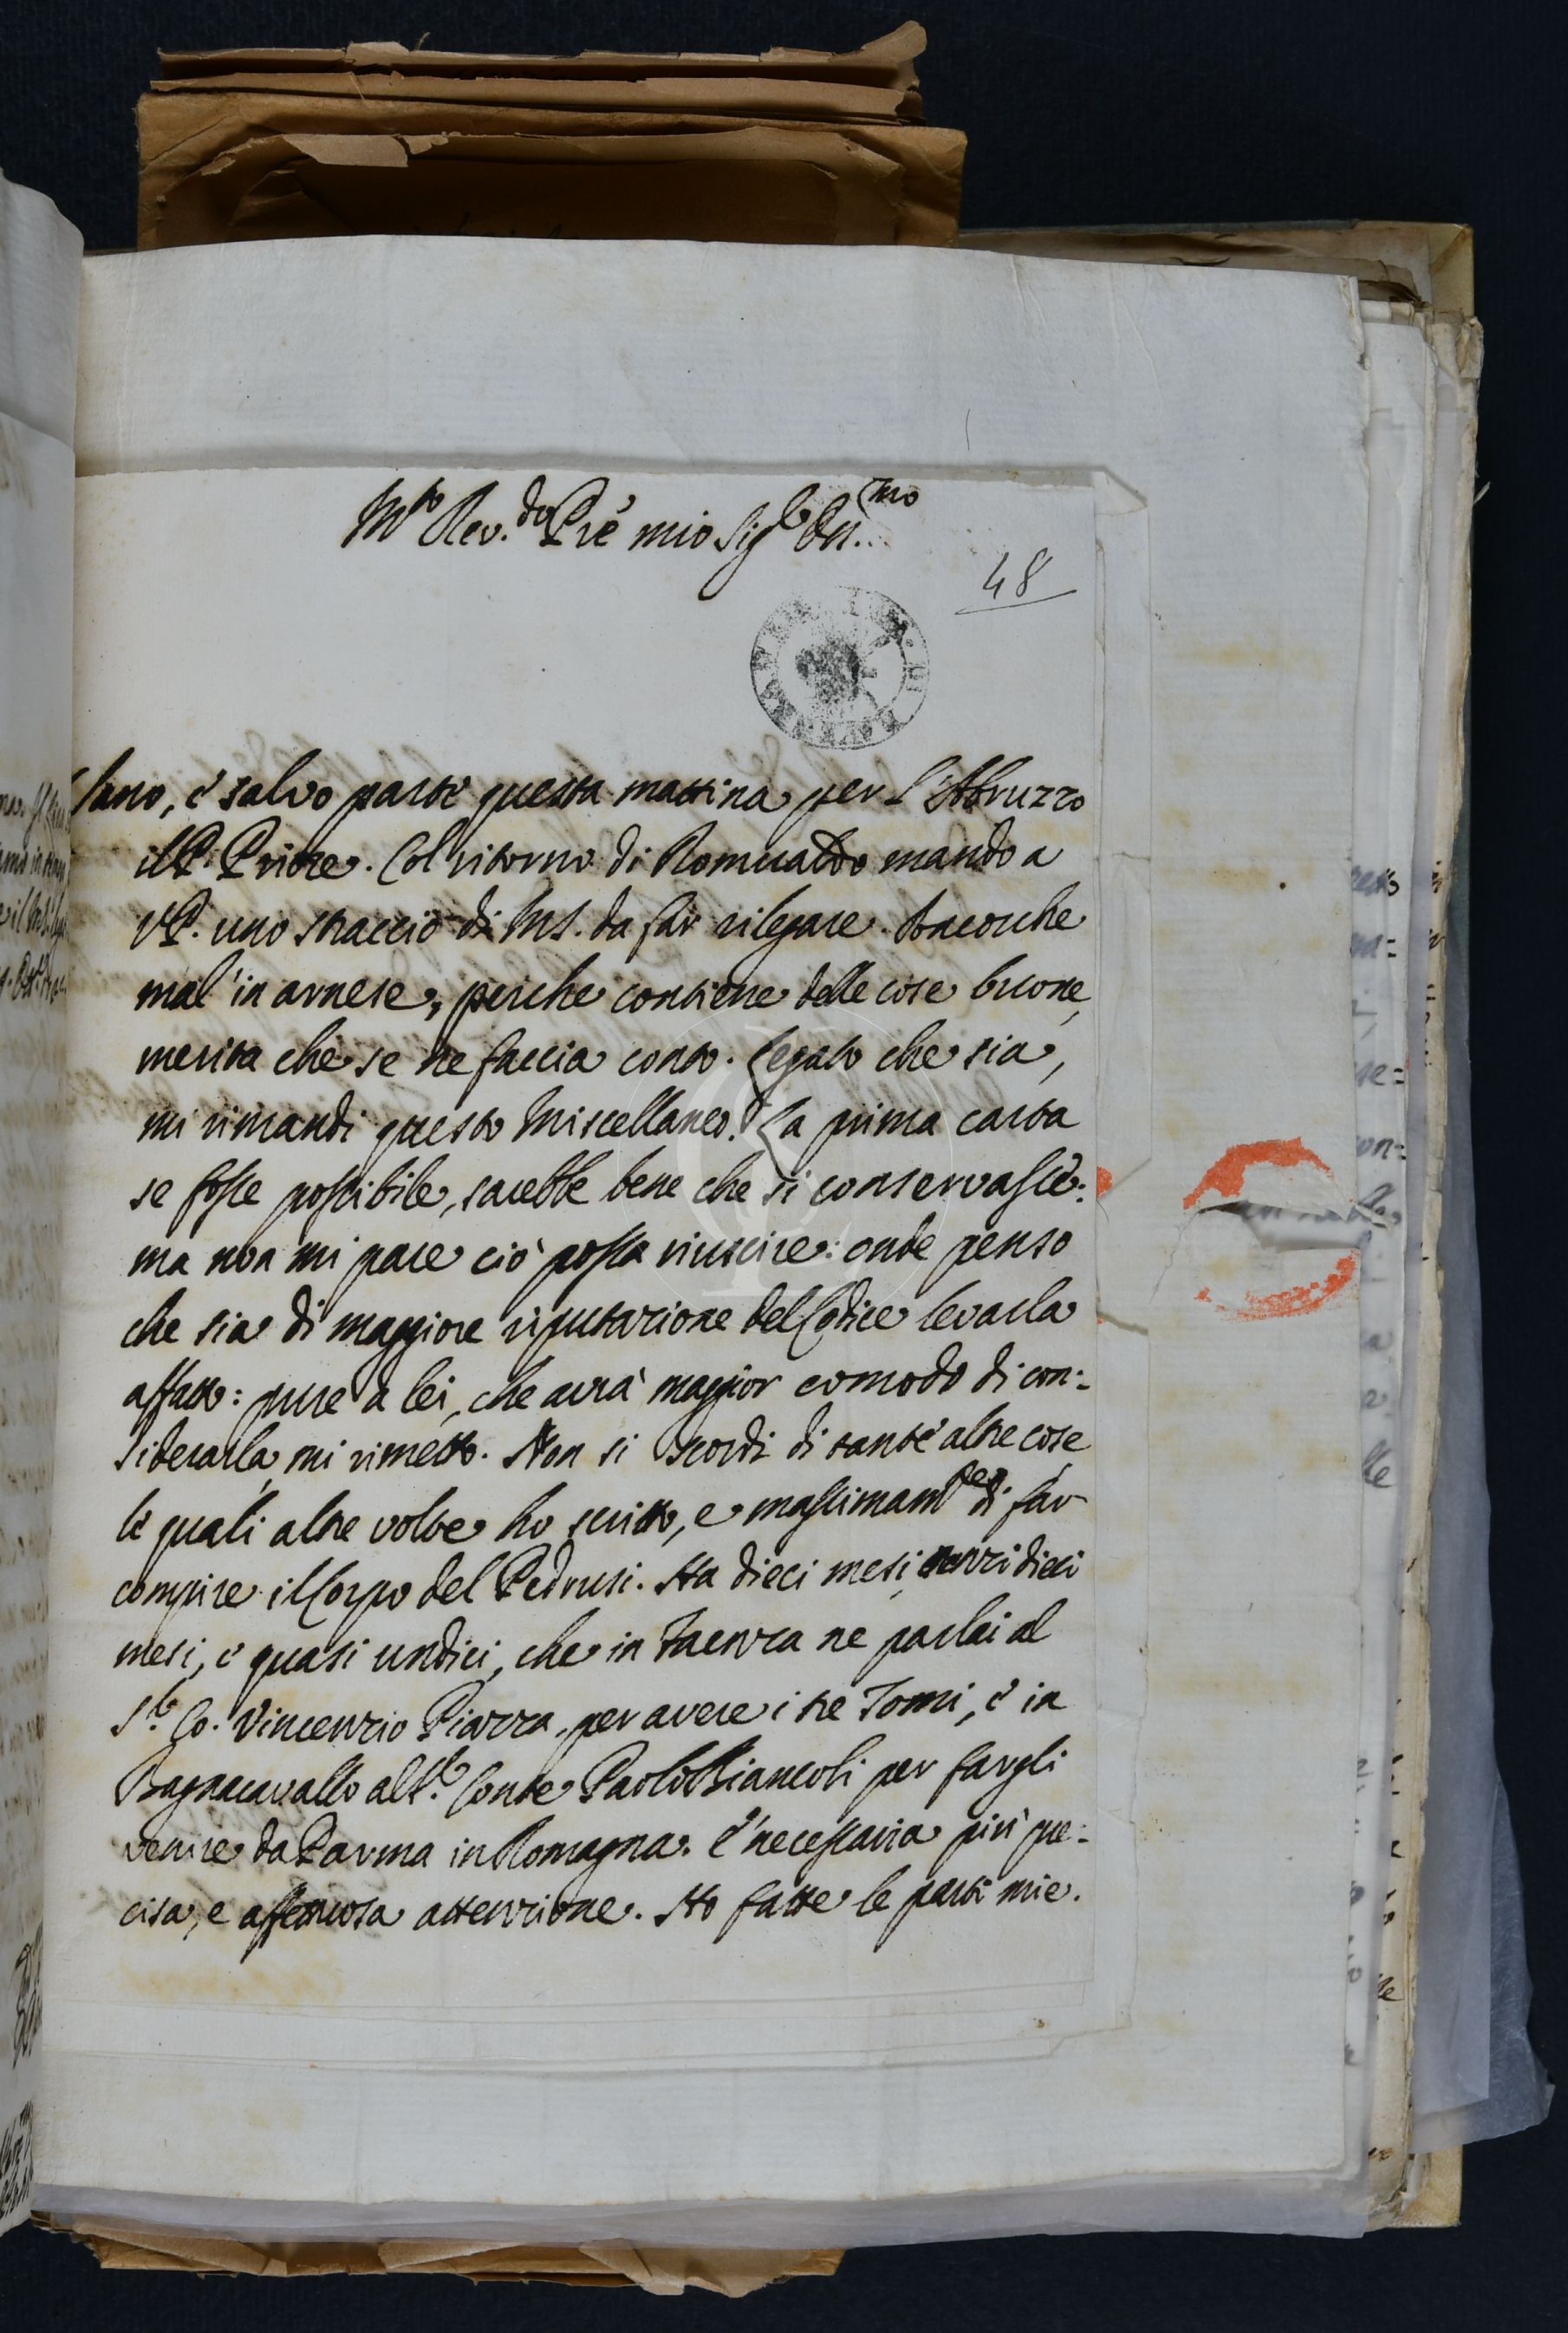 M.to Rev.do Pre mio Sig.r Oss.mo
48
Sano, e salvo partì questa mattina per l'Abruzzo
il P. Priore. Col ritorno di Romualdo mando a
V.P. uno straccio di MS. da far rilegare. Ancorche
mal' in arnese, perche contiene delle cose buone,
merita che se ne faccia conto. Legato che sia,
mi rimandi questo Miscellaneo. La prima carta
se fosse possibile, sarebbe bene che si conservasse:
ma non mi pare ciò possa riuscire: onde penso
che sia di maggiore riputazione del Codice levarla
affatto: pure a lei, che avrà maggior comodo di con=
siderarla, mi rimetto. Non si scordi di tant'altre cose
le quali altre volte ho scritto, e massimam.te di far
compire il Corpo del Pedrusi. Ha dieci mesi, anzi dieci
mesi, e quasi undici, che in Faenza ne parlai al
S.r Co. Vincenzio Piazza, per avere i tre Tomi, e in
Bagnacavallo al S.r Conte Paolo Biancoli per fargli
venire da Parma in Romagna. È necessaria più pre=
cisa, e affettuosa attenzione. Ho fatte le parti mie.